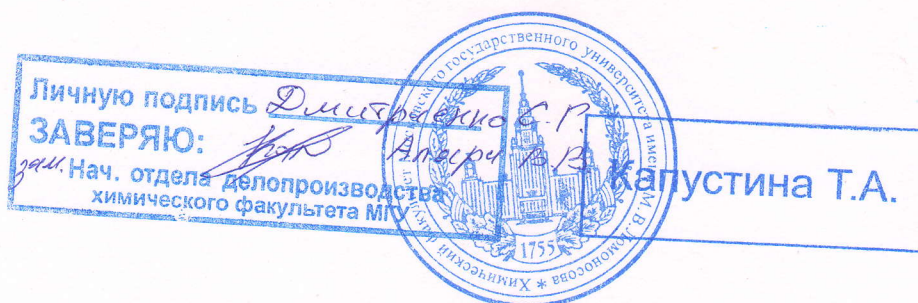 Личную подпись Дмитриенко С. Г.
ЗАВЕРЯЮ: Апяри В. В.
зам. Нач. отдела делопроизводства
химического факультета МГУ
Химический факультет Московского государственного университета имени М. В. Ломоносова *
1755
Капустина Т.А.